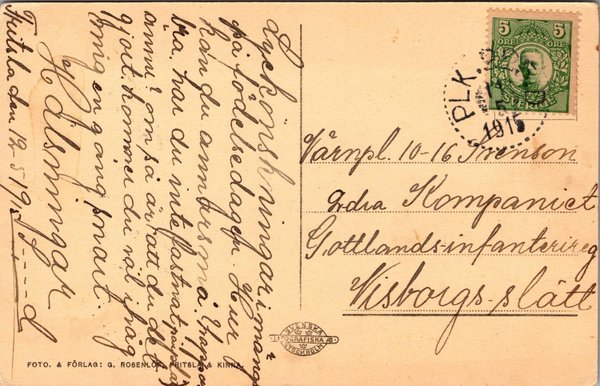 Lyckönskningar i mängd
på födelsedagen. Hur
kan du annars må? Jo
bra, har du inte fastnat
ännu? om så är att du det
gjort kommer du väl i håg
mig en gång snart
Hälsningar
Fritsla den 12.5.1915
5 5
ÖRE ÖRE
SVERIGE
PLK.
1915
Värnpl. 10-16 Svenson
2dra Kompaniet
Gottlands-infanterireg
Visborgs slätt
SVENSKA
LITOGRAFISKA AB
STOCKHOLM
FOTO. & FÖRLAG: G. ROSENLÖF, FRITSLA & KINNA.